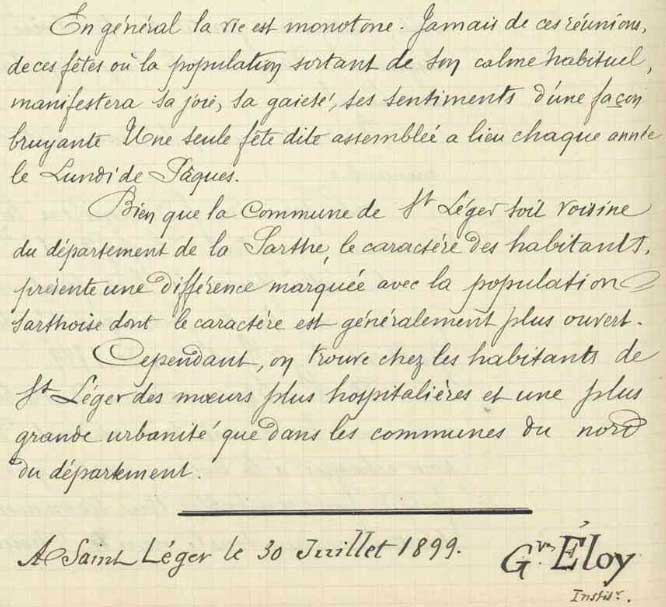 En général la vie est monotone. Jamais de ces réunions,
de ces fêtes où la population sortant de son calme habituel,
manifestera sa joie, sa gaieté, ses sentiments d'une façon
bruyante Une seule fête dite assemblée a lieu chaque année
le Lundi de Pâques.
Bien que la Commune de St Léger soit voisine
du département de la Sarthe, le caractère des habitants,
présente une différence marquée avec la population
sarthoise dont le caractère est généralement plus ouvert.
Cependant, on trouve chez les habitants de
St Léger des mœurs plus hospitalières et une plus
grande urbanité que dans les communes du nord
du département.
A Saint Léger le 30 Juillet 1899.
G.ves Éloy
Instit.r.